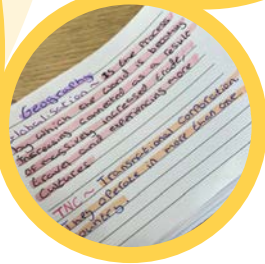 Geography
Globalisation ~ Is the process
by which the world is becoming
increasingly connected as a result
of massively increased trade,
travel and experiencing more
cultures.
TNC ~ Transnational Corporation
They operate in more than one
country.